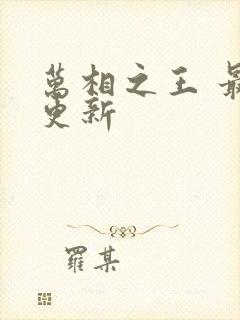 萬相之王 最
更新
羅某